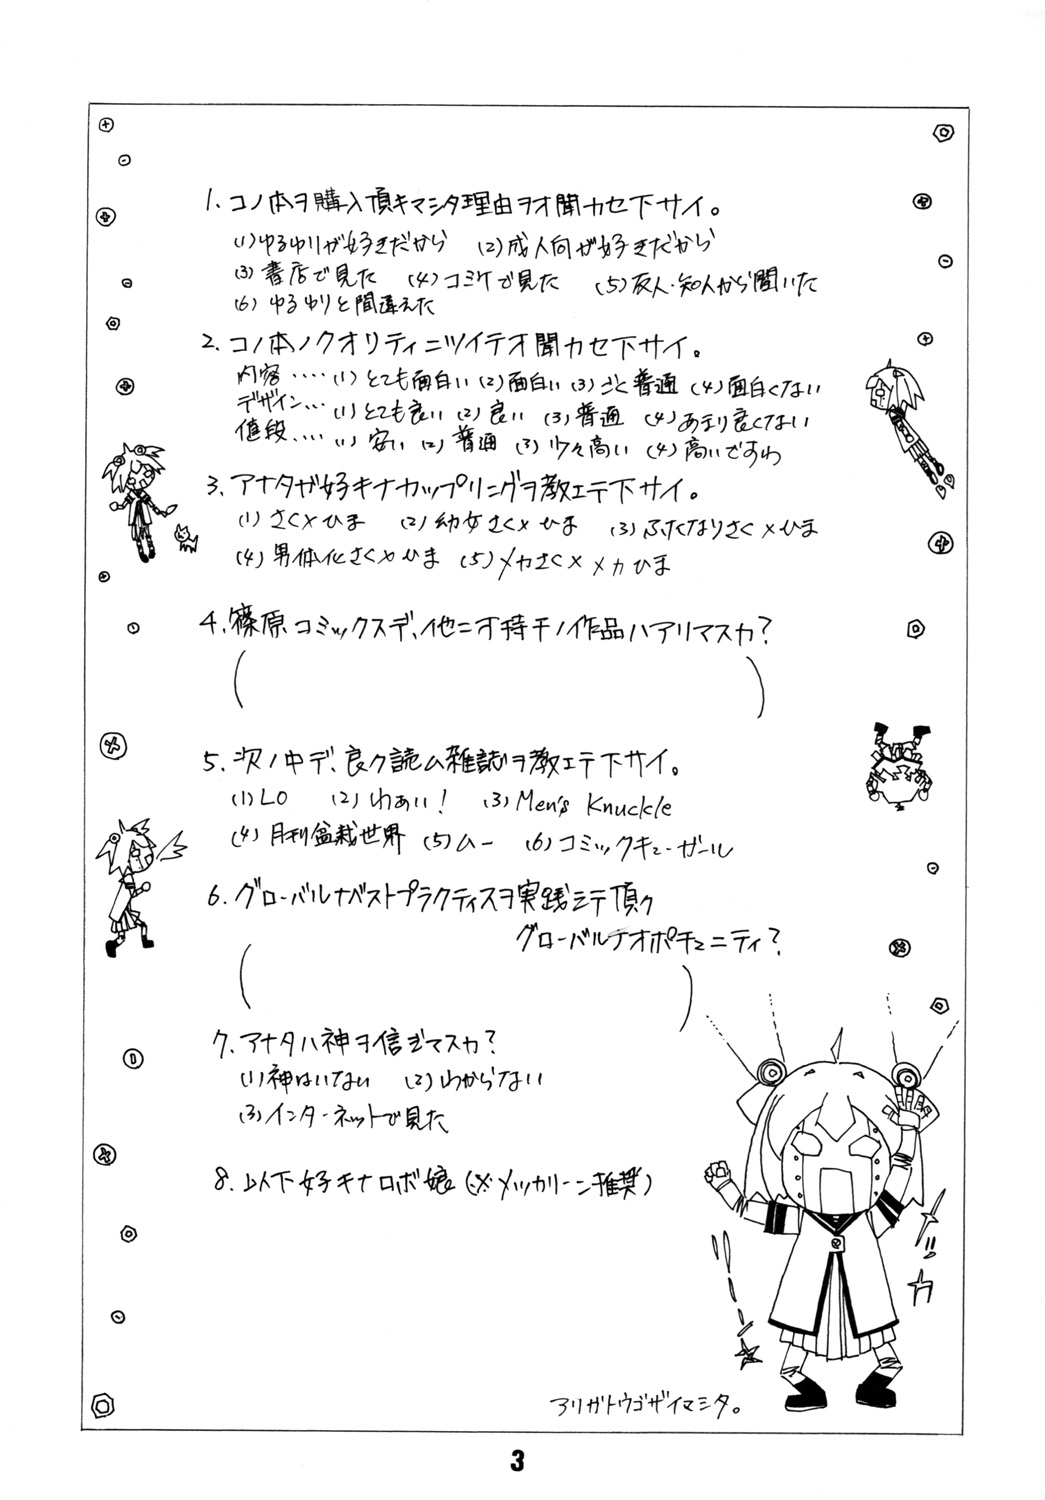 1. コノ本ヲ購入頂キマシタ理由ヲオ聞カセ下サイ。
(1)ゆるゆりが好きだから (2)成人向が好きだから
(3)書店で見た (4)コミケで見た (5)友人・知人から聞いた
(6)ゆるゆりと間違えた
2. コノ本ノクオリティニツイテオ聞カセ下サイ。
内容‥‥(1)とても面白い(2)面白い(3)ごく普通(4)面白くない
デザイン…(1)とても良い(2)良い (3)普通 (4)あまり良くない
値段‥‥(1)安い(2)普通(3)少々高い(4)高いですわ
3. アナタガ好キナカップリングヲ教エテ下サイ。
(1)さく×ひま (2)幼女さく×ひま (3)ふたなりさく×ひま
(4)男体化さく×ひま (5)メカさく×メカひま
4. 篠原コミックスデ、他ニオ持チノ作品ハアリマスカ?
( )
5. 次ノ中デ、良ク読ム雑誌ヲ教エテ下サイ。
(1)LO (2)わぁい! (3)Men's Knuckle
(4)月刊盆栽世界 (5)ムー (6)コミックキューガール
6. グローバルナベストプラクティスヲ実践シテ頂ク
グローバルナオポチュニティ?
( )
7. アナタハ神ヲ信ジマスカ?
(1)神はいない (2)わからない
(3)インターネットで見た
8. 以下好キナロボ娘(※メッカリーン推奨)
ガッカ
アリガトウゴザイマシタ。
3